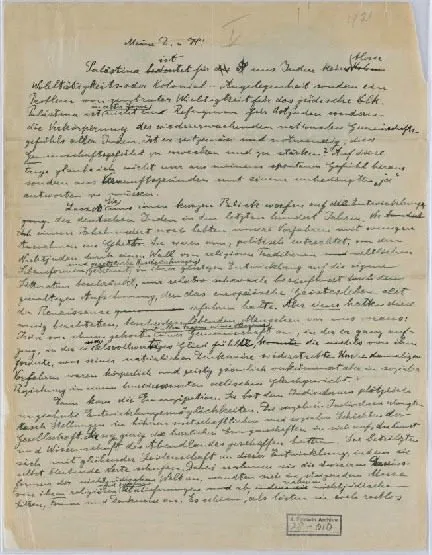 1921
Meine D. u. H!
ist
Palästina für uns Juden keine blosse
Wohltätigkeits- oder Kolonial-Angelegenheit sondern ein
Problem von zentraler Wichtigkeit für das jüdische Volk.
Palästina ist nicht Refugium für Ostjuden sondern
die Verkörperung des wiedererwachenden nationalen Gemeinschafts-
gefühls aller Juden. Ist es zeitgemäss und notwendig, dies
Gemeinschaftsgefühl zu erwecken und zu stärken? Auf diese
Frage glaube ich nicht nur aus meinem spontanen Gefühl heraus
sondern aus Vernunftgründen mit einem unbedingten „ja"
antworten zu müssen.
Lassen Sie uns einen kurzen Blick werfen auf die Entwicklung
der deutschen Juden in den letzten hundert Jahren.
Jahrhundert noch lebten unsere Vorfahren mit wenigen
Ausnahmen im Ghetto. Sie waren arm, politisch entrechtet, von den
Nichtjuden durch einen Wall von religiösen Traditionen,
Lebensformen in ihrer geistigen Entwicklung auf die eigene
Litteratur beschränkt, nur relativ schwach beeinflusst durch den
gewaltigen Aufschwung, den das europäische Geistesleben seit
der Renaissance erfahren hatte. Aber eines hatten diese
lebenden Menschen vor uns voraus:
Jeder von ihnen gehörte einer Gemeinschaft an, in der er ganz auf-
ging, in der er sich als vollwertiges Glied fühlte, die nichts von ihm
forderte, was seiner natürlichen Denkweise widerstrebte. Unsere damaligen
Vorfahren waren körperlich und geistig ziemlich verkümmert aber in sozialer
Beziehung in einem beneidenswerten seelischen Gleichgewicht.
Dann kam die Emanzipation. Sie bot dem Individuum plötzlich
ungeahnte Entwicklungsmöglichkeiten. Die einzelnen Individuen erlangten
rasch Stellungen in höheren wirtschaftlichen und sozialen Schichten der
Gesellschaft. Sie die herrlichen Errungenschaften in sich auf, die Kunst
und Wissenschaft des Abendlandes geschaffen hatten. Sie beteiligten
sich mit glühender Leidenschaft an dieser Entwicklung, indem sie
selbst bleibende Werte schufen. Dabei nahmen sie die äusseren Lebens-
formen der nichtjüdischen Welt an, wandten sich in steigendem Masse
von ihren religiösen und sozialen Traditionen ab, nahmen nichtjüdische
Sitten, Formen und Denkweisen an. Es schien, als lösten sie sich restlos